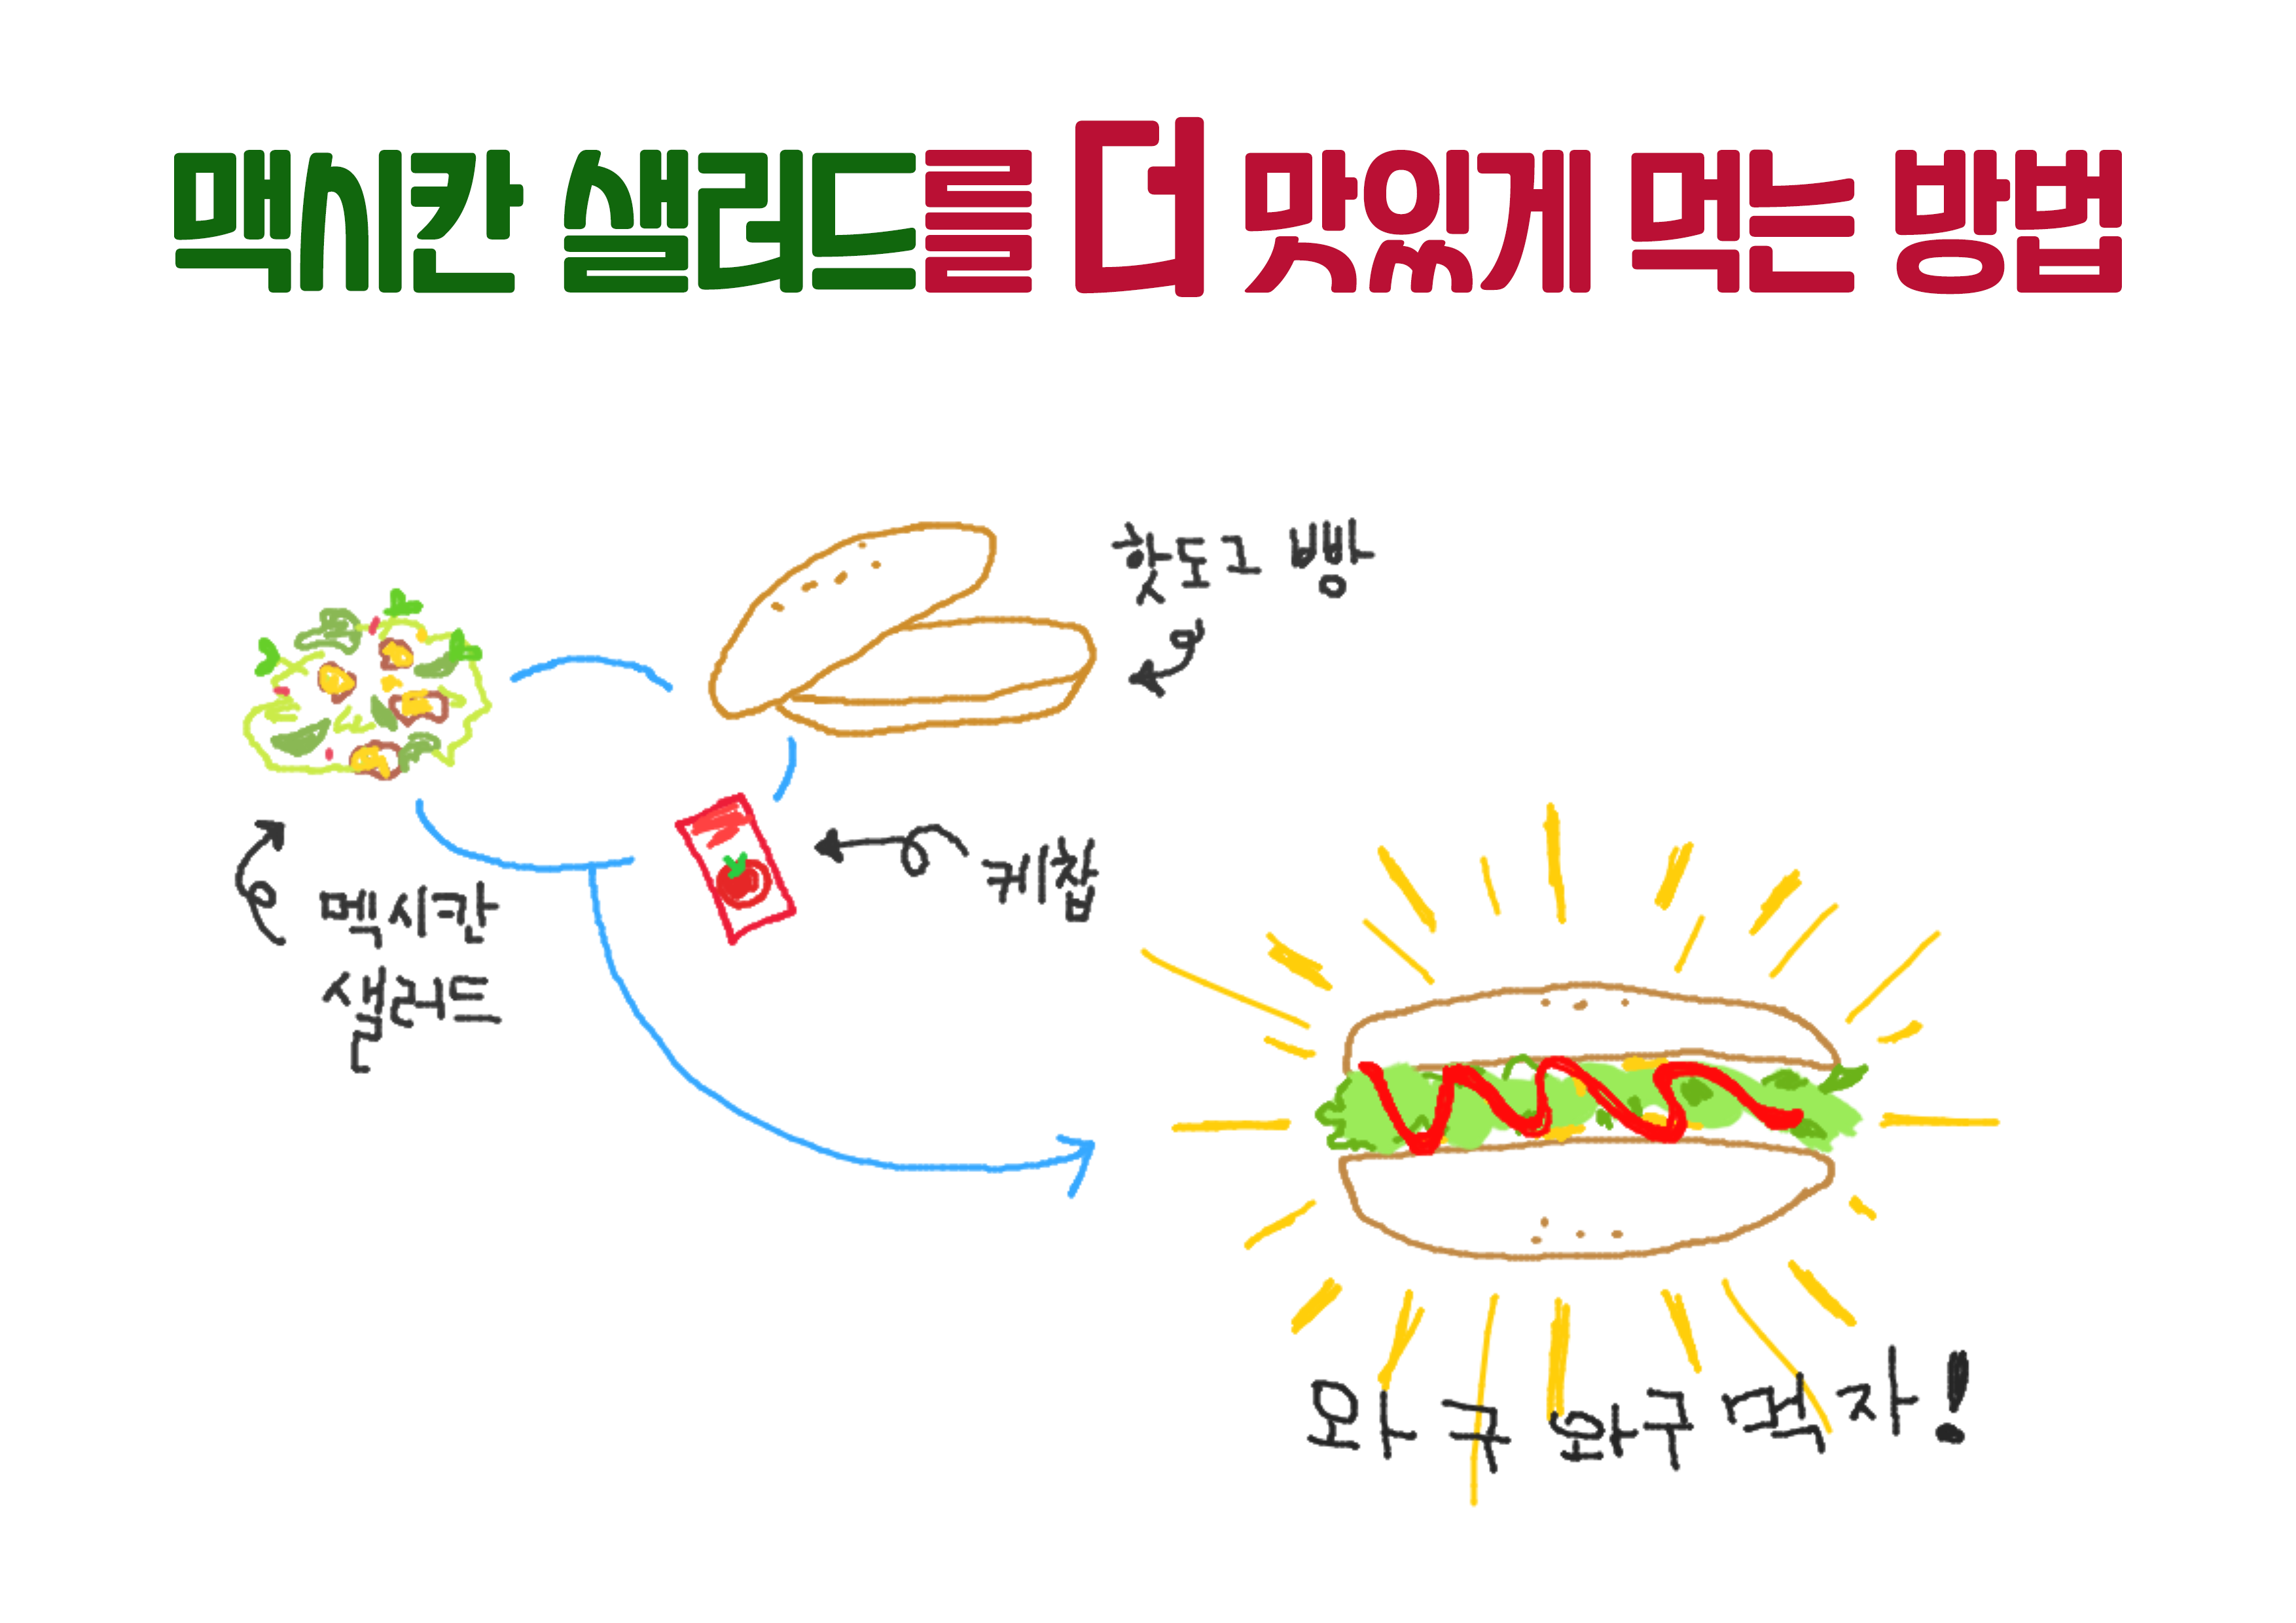 맥시칸 샐러드를 더 맛있게 먹는 방법
핫도그 빵
케찹
멕시칸
샐러드
와구 와구 먹자!